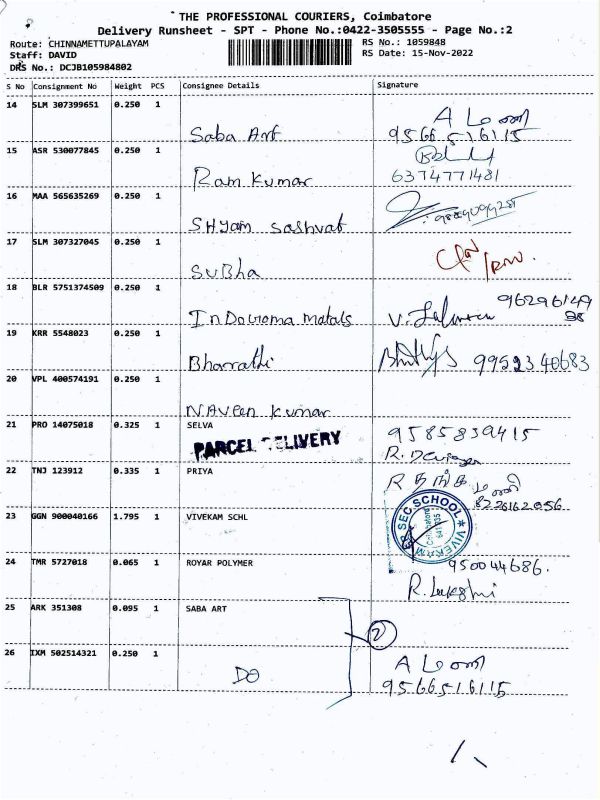 THE PROFESSIONAL COURIERS, Coimbatore
Delivery Runsheet - SPT - Phone No.:0422-3505555 - Page No.:2
Route: CHINNAMETTUPALAYAM
RS No.: 1059848
Staff: DAVID
RS Date: 15-Nov-2022
DRS No.: DCJB105984802
S No Consignment No Weight PCS Consignee Details Signature
14 SLM 307399651 0.250 1
Saba Art
A மணி
9566516115
15 ASR 530077845 0.250 1
Ram Kumar
6374771431
16 MAA 565635269 0.250 1
SHyam Sashvat
17 SLM 307327045 0.250 1
SUBha
18 BLR 5751374509 0.250 1
InDouroma Matals
V.
19 KRR 5548023 0.250 1
Bharrathi
9952340683
20 VPL 400574191 0.250 1
NAVeen Kumar
21 PRO 14075018 0.325 1 SELVA
PARCEL DELIVERY
9585839415
R.
22 TNJ 123912 0.335 1 PRIYA
R தங்கமணி
8226162056
23 GGN 900040166 1.795 1 VIVEKAM SCHL
SEC SCHOOL ★ VIVEKAM
Coimbatore
24 TMR 5727018 0.065 1 ROYAR POLYMER
950044686.
R. Lakshmi
25 ARK 351308 0.095 1 SABA ART
2
26 IXM 502514321 0.250 1
DO
A மணி
9566516115